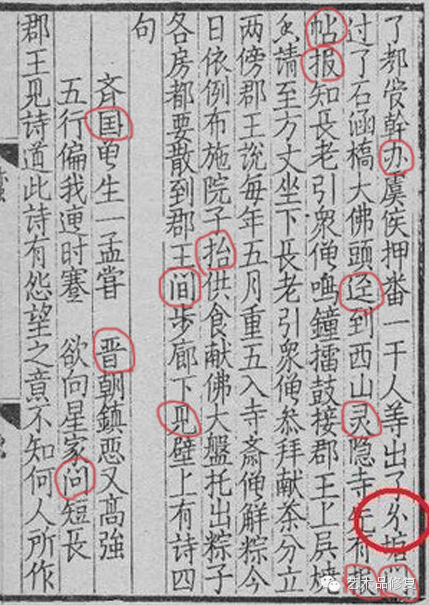 了都管幹办虞侯押番一干人等出了
过了石涵橋大佛頭迳到西山灵隐寺先有报
帖报知長老引衆僧鳴鐘擂鼓接郡王上殿燒
香請至方丈坐下長老引衆僧参拜献茶分立
两傍郡王說每年五月重五入寺斎僧解粽今
日依例布施院子抬供食献佛大盤托出粽子
各房都要散到郡王间步廊下见壁上有诗四
句
斉国曽生一孟嘗 晋朝鎮惡又高強
五行偏我遭时蹇 欲向星家问短長
郡王见诗道此诗有怨望之意不知何人所作
艺术品修复